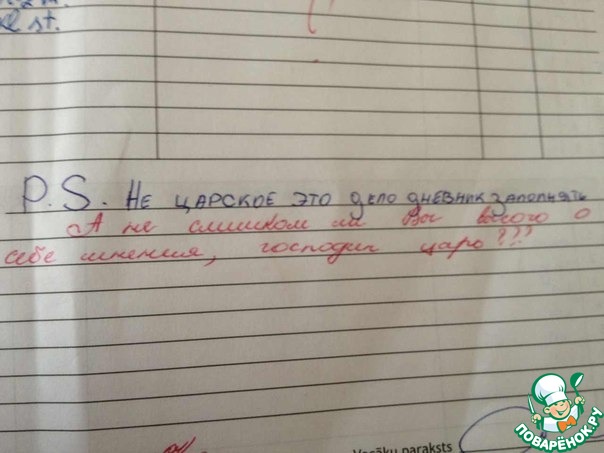 st.
P.S. НЕ ЦАРСКОЕ ЭТО ДЕЛО ДНЕВНИК ЗАПОЛНЯТЬ
А не слишком ли Вы высого о
себе мнения, господин царь???
Vecāku paraksts
ПОВАРЁНОК.РУ